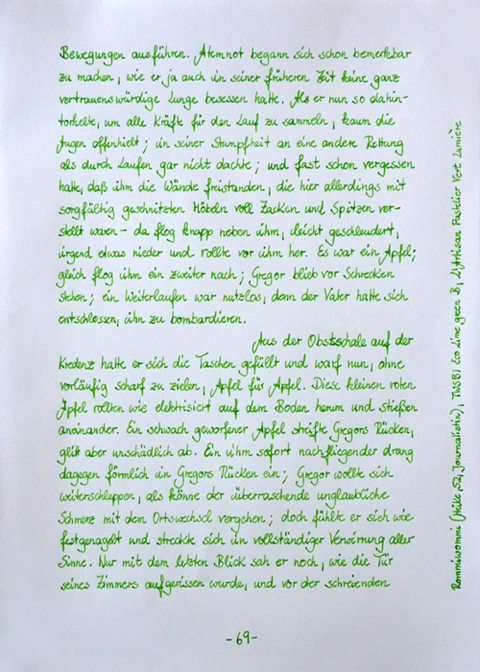 Bewegungen ausführen. Atemnot begann sich schon bemerkbar
zu machen, wie er ja auch in seiner früheren Zeit keine ganz
vertrauenswürdige Lunge besessen hatte. Als er nun so dahin-
torkelte, um alle Kräfte für den Lauf zu sammeln, kaum die
Augen offenhielt; in seiner Stumpfheit an eine andere Rettung
als durch Laufen gar nicht dachte; und fast schon vergessen
hatte, daß ihm die Wände freistanden, die hier allerdings mit
sorgfältig geschnitzten Möbeln voll Zacken und Spitzen ver-
stellt waren - da flog knapp neben ihm, leicht geschleudert,
irgend etwas nieder und rollte vor ihm her. Es war ein Apfel;
gleich flog ihm ein zweiter nach; Gregor blieb vor Schrecken
stehen; ein Weiterlaufen war nutzlos, denn der Vater hatte sich
entschlossen, ihn zu bombardieren.
Aus der Obstschale auf der
Kredenz hatte er sich die Taschen gefüllt und warf nun, ohne
vorläufig scharf zu zielen, Apfel für Apfel. Diese kleinen roten
Äpfel rollten wie elektrisiert auf dem Boden herum und stießen
aneinander. Ein schwach geworfener Apfel streifte Gregors Rücken,
glitt aber unschädlich ab. Ein ihm sofort nachfliegender drang
dagegen förmlich in Gregors Rücken ein; Gregor wollte sich
weiterschleppen, als könne der überraschende unglaubliche
Schmerz mit dem Ortswechsel vergehen; doch fühlte er sich wie
festgenagelt und streckte sich in vollständiger Verwirrung aller
Sinne. Nur mit dem letzten Blick sah er noch, wie die Tür
seines Zimmers aufgerissen wurde, und vor der schreienden
-69-
(Heike, 52, Journalistin), TWSBI Eco Lime green B, L'Artisan Pastellier Vert Lumière